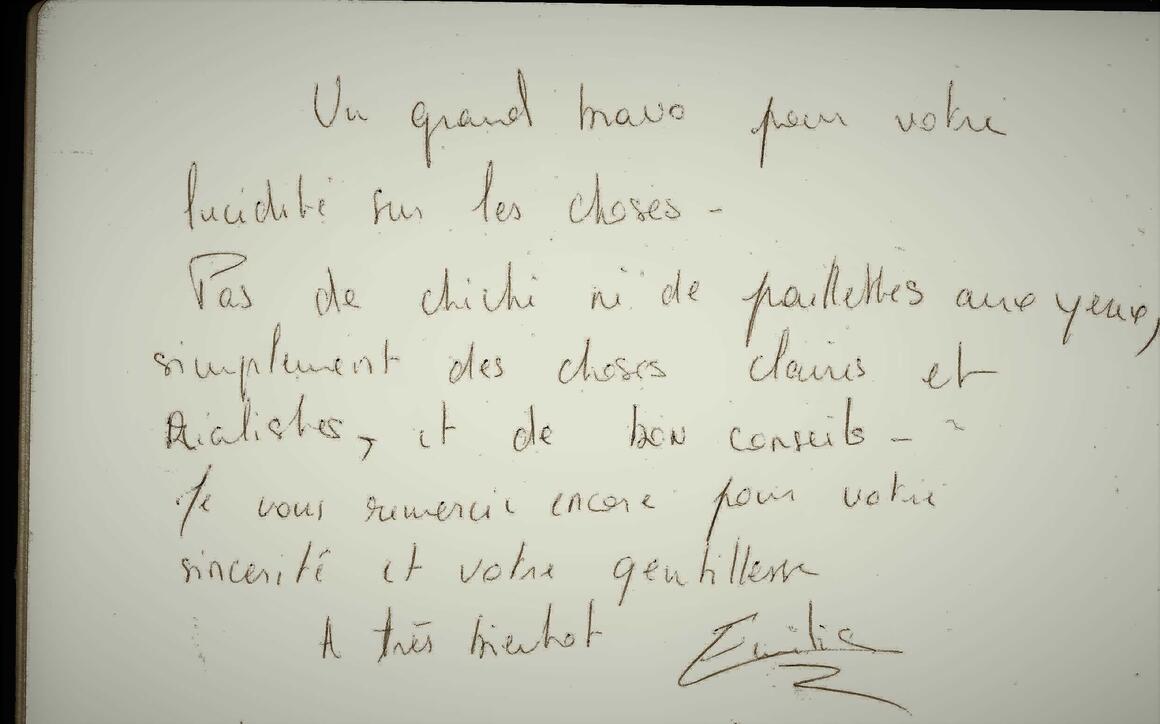 Un grand bravo pour votre
lucidité sur les choses -
Pas de chichi ni de paillettes aux yeux,
simplement des choses claires et
réalistes, et de bon conseils -
Je vous remercie encore pour votre
sincerité et votre gentillesse
A très bientot Emilie